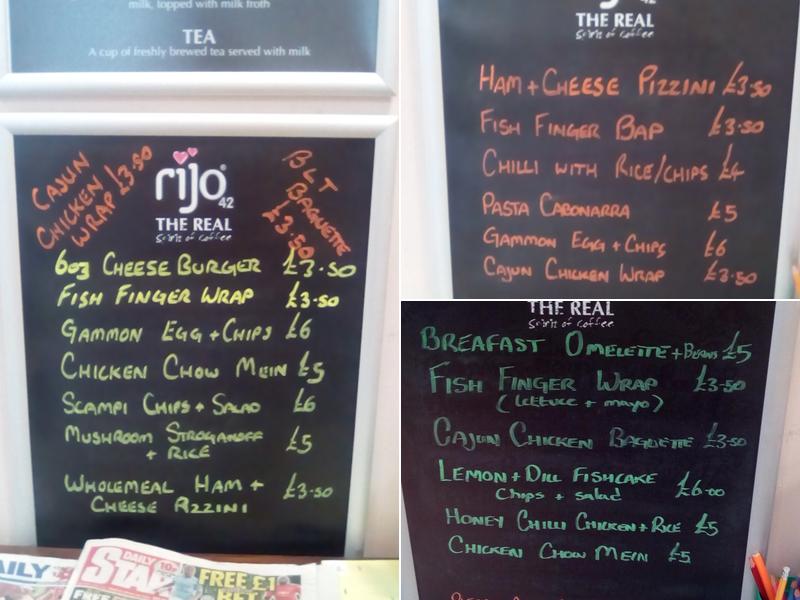 milk, topped with milk froth
TEA
A cup of freshly brewed tea served with milk
CAJUN
CHICKEN
WRAP £3.50
rijo
42
THE REAL
Spirit of Coffee
BLT
BAGUETTE
£3.50
6oz CHEESE BURGER £3.50
FISH FINGER WRAP £3.50
GAMMON EGG + CHIPS £6
CHICKEN CHOW MEIN £5
SCAMPI CHIPS + SALAD £6
MUSHROOM STROGANOFF
+ RICE £5
WHOLEMEAL HAM +
CHEESE PIZZINI £3.50
DAILY
DAILY
STAR
FREE £1
BET
42
THE REAL
Spirit of Coffee
HAM + CHEESE PIZZINI £3.50
FISH FINGER BAP £3.50
CHILLI WITH RICE/CHIPS £4
PASTA CABONARRA £5
GAMMON EGG + CHIPS £6
CAJUN CHICKEN WRAP £3.50
THE REAL
Spirit of Coffee
BREAFAST OMELETTE + BEANS £5
FISH FINGER WRAP £3.50
(LETTUCE + MAYO)
CAJUN CHICKEN BAGUETTE £3.50
LEMON + DILL FISHCAKE
CHIPS + SALAD £6.00
HONEY CHILLI CHICKEN + RICE £5
CHICKEN CHOW MEIN £5